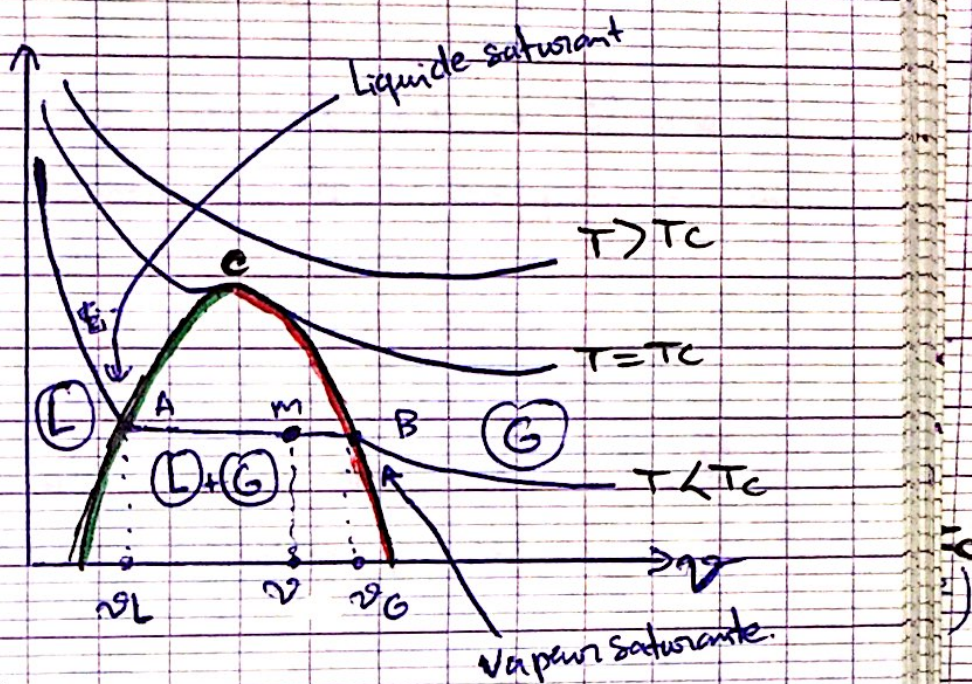 Liquide saturant
T > Tc
C
T = Tc
L
A
m
B
G
L + G
T < Tc
v
vL
v
vG
Vapeur saturante.